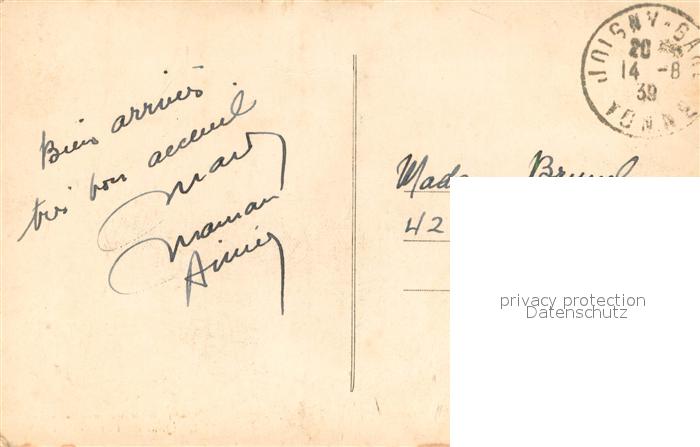 Bien arrivés
très bon accueil
Mady
Maman
Aimée
JOIGNY-GARE
20
14 -8
39
YONNE
Mada
42
privacy protection
Datenschutz